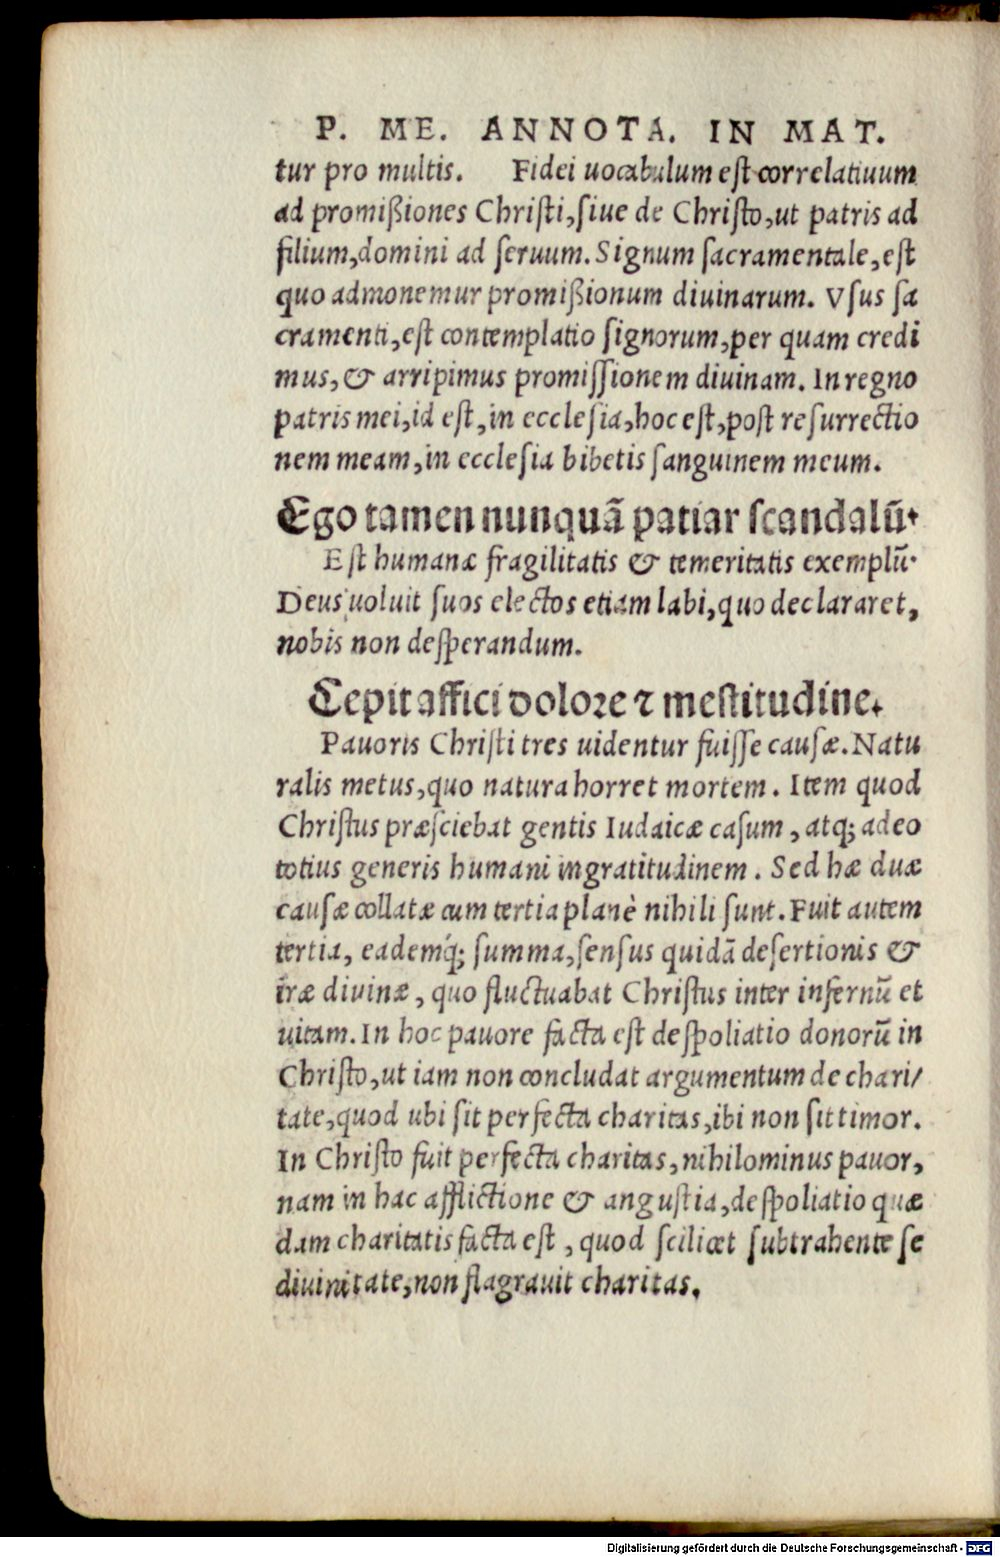 P. ME. ANNOTA. IN MAT.
tur pro multis. Fidei uocabulum est correlatiuum
ad promißiones Christi, siue de Christo, ut patris ad
filium, domini ad seruum. Signum sacramentale, est
quo admonemur promißionum diuinarum. Vsus sa
cramenti, est contemplatio signorum, per quam credi
mus, & arripimus promissionem diuinam. In regno
patris mei, id est, in ecclesia, hoc est, post resurrectio
nem meam, in ecclesia bibetis sanguinem meum.
Ego tamen nunquã patiar scandalũ.
Est humanæ fragilitatis & temeritatis exemplũ.
Deus uoluit suos electos etiam labi, quo declararet,
nobis non desperandum.
Cepit affici dolore ⁊ mestitudine.
Pauoris Christi tres uidentur fuisse causæ. Natu
ralis metus, quo natura horret mortem. Item quod
Christus præsciebat gentis Iudaicæ casum, atq; adeo
totius generis humani ingratitudinem. Sed hæ duæ
causæ collatæ cum tertia planè nihili sunt. Fuit autem
tertia, eademq́; summa, sensus quidã desertionis &
iræ diuinæ, quo fluctuabat Christus inter infernũ et
uitam. In hoc pauore facta est despoliatio donorũ in
Christo, ut iam non concludat argumentum de chari/
tate, quod ubi sit perfecta charitas, ibi non sit timor.
In Christo fuit perfecta charitas, nihilominus pauor,
nam in hac afflictione & angustia, despoliatio quæ
dam charitatis facta est, quod scilicet subtrahente se
diuinitate, non flagrauit charitas.
Digitalisierung gefördert durch die Deutsche Forschungsgemeinschaft - DFG